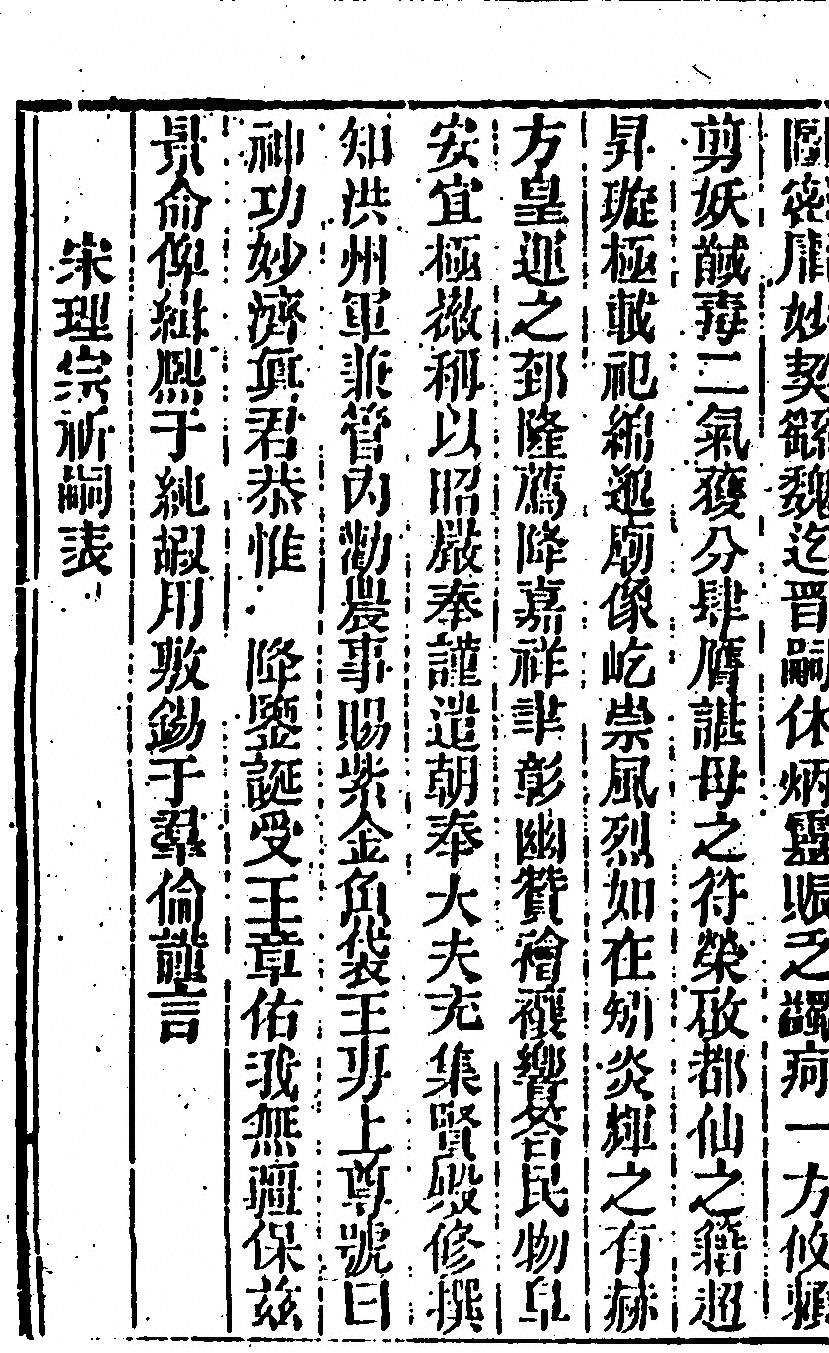 圖窓牖妙契籙魏迄晉嗣休炳靈賑乏蠲痾一方攸賴
剪妖馘毒二氣獲分肆膺諶母之符榮啟都仙之籍超
昇璇極載祀綿邈廟像屹崇風烈如在矧炎輝之有赫
方皇運之郅隆薦降嘉祥聿彰幽贊禬禳響答民物阜
安宜極徽稱以昭嚴奉謹遣朝奉大夫充集賢殿修撰
知洪州軍兼管內勸農事賜紫金魚袋王昜上尊號曰
神功妙濟真君恭惟 降鑒誕受玉章佑我無疆保茲
景命俾緝熙于純嘏用敷錫于羣倫謹言
宋理宗祈嗣表